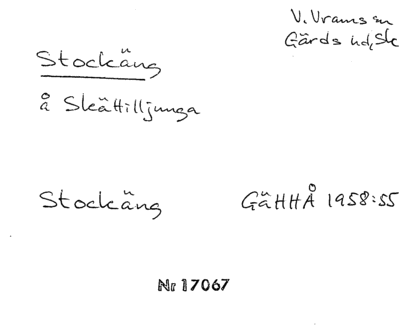 V. Vrams sn
Gärds hd, Sk
Stockäng
å Skättilljunga
Stockäng GäHHÅ 1958:55
Nr 17067